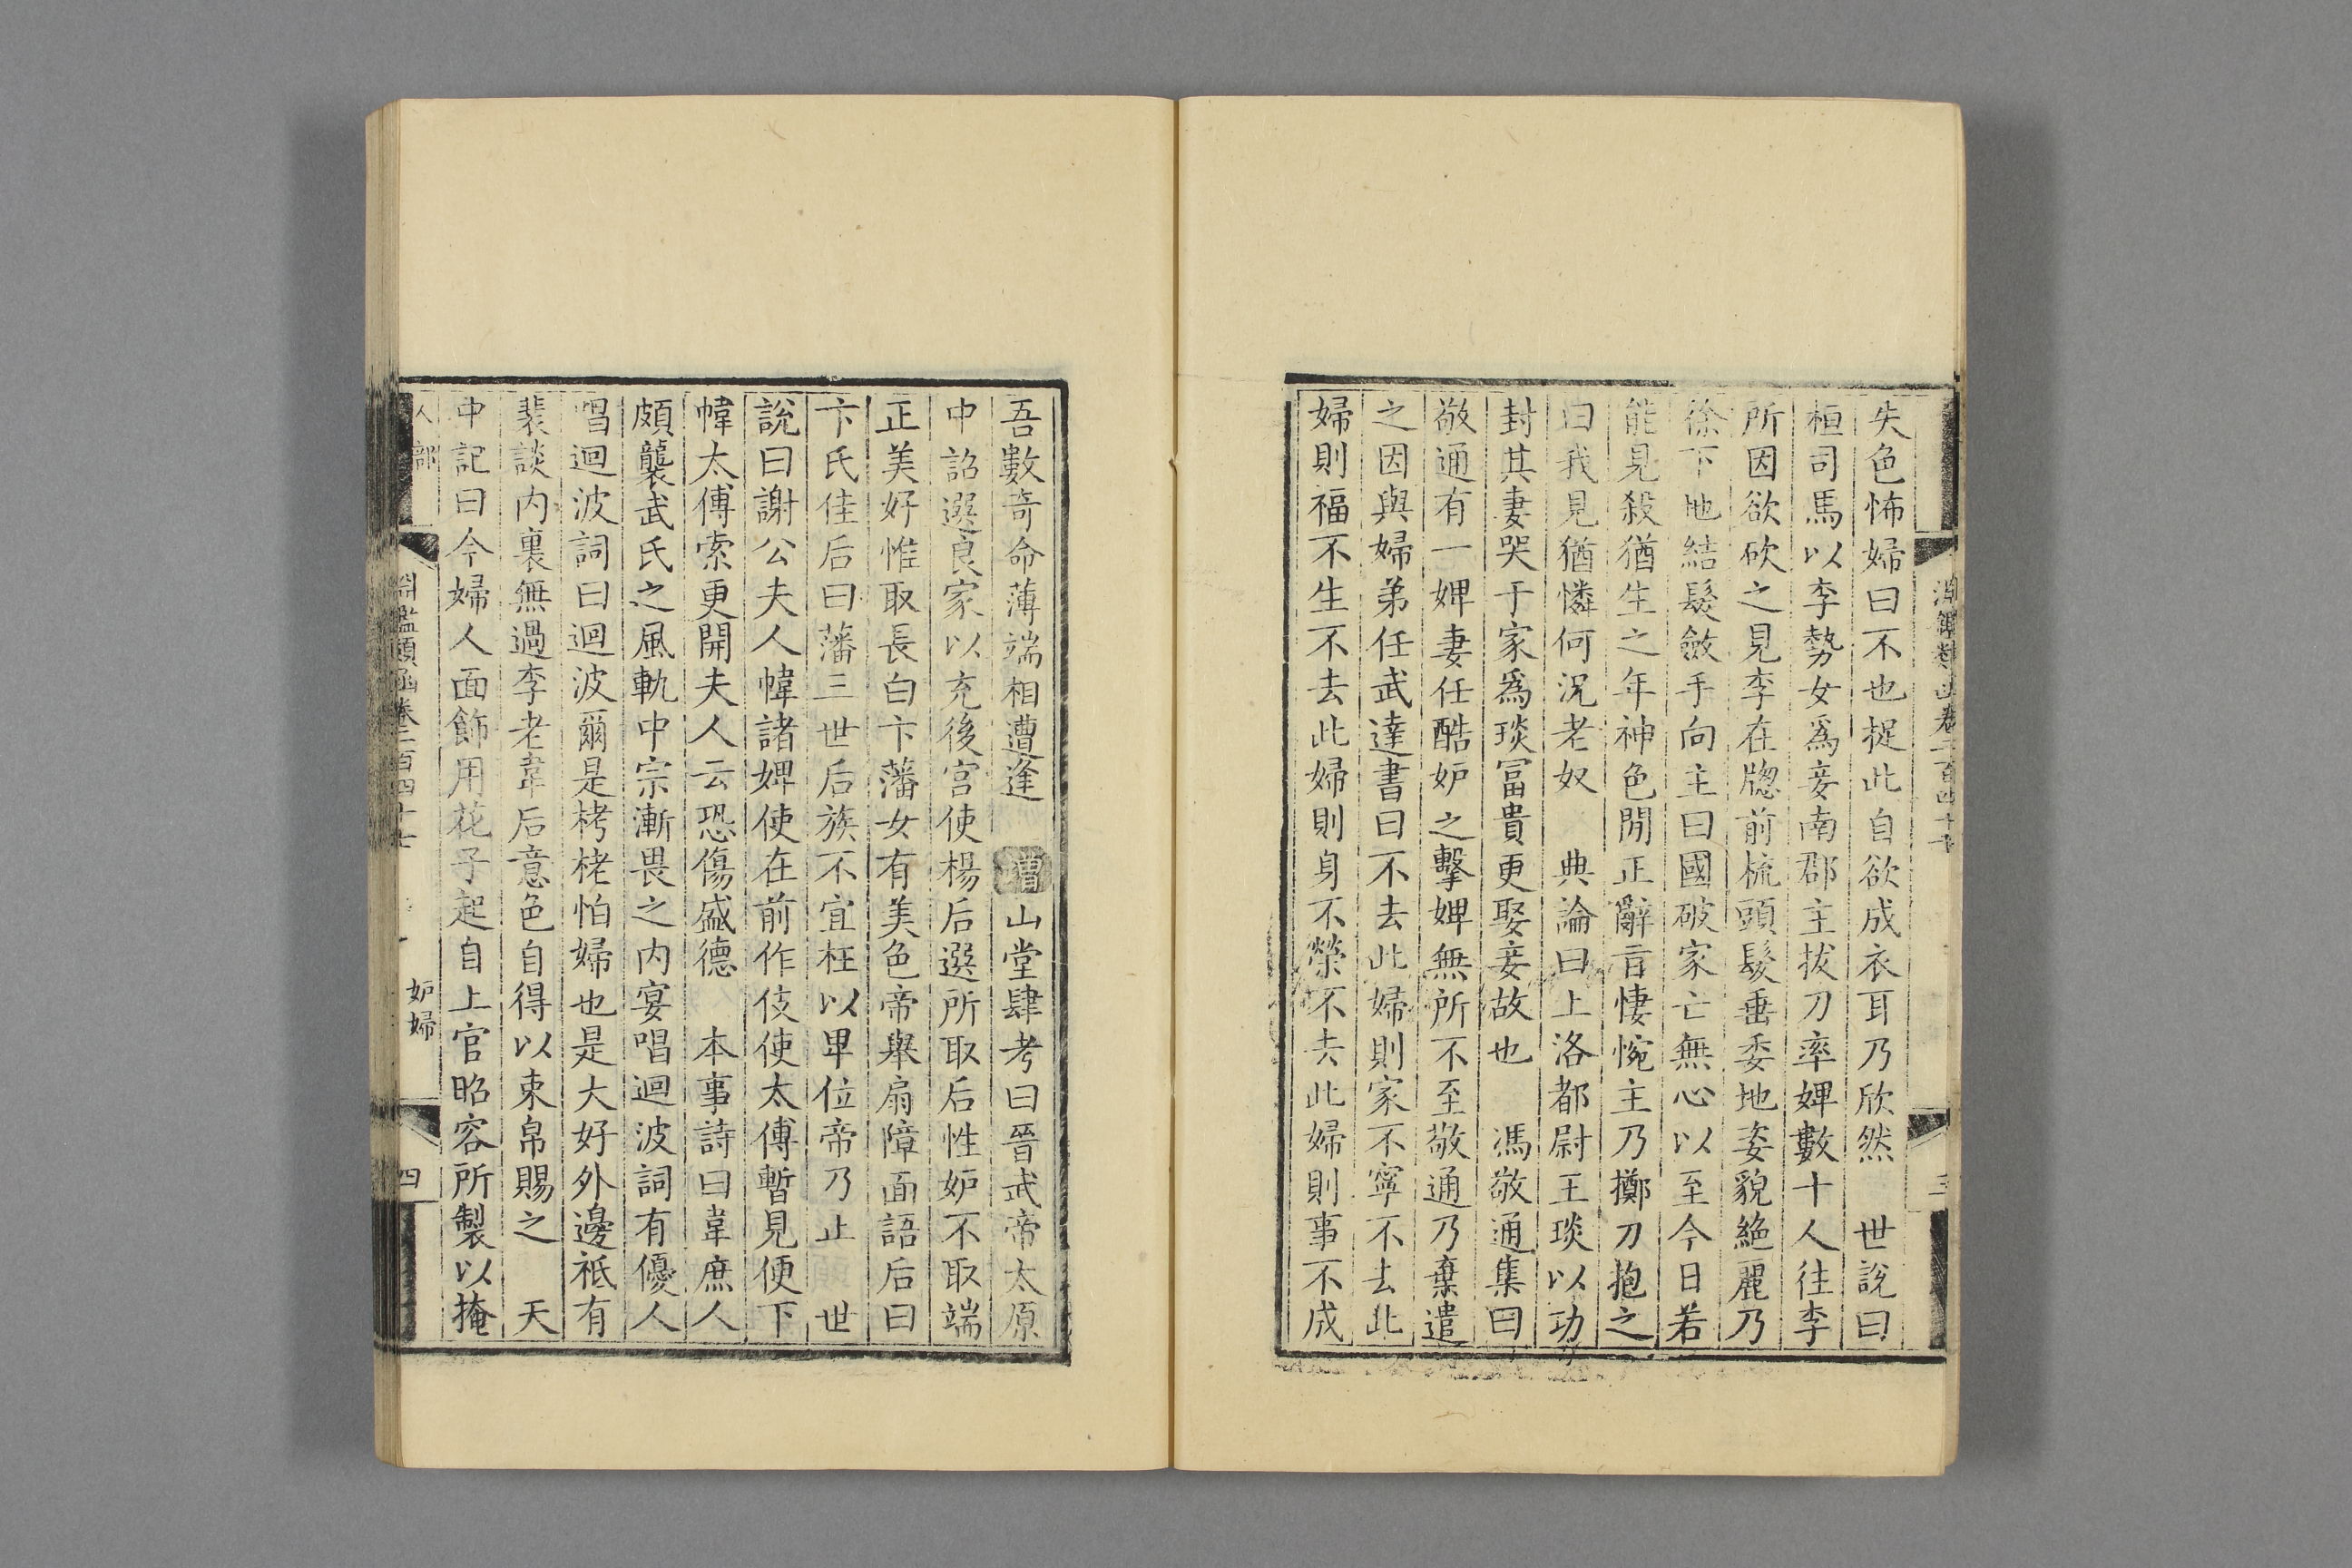 失色怖婦曰不也捉此自欲成衣耳乃欣然　世說曰
桓司馬以李勢女爲妾南郡主拔刀率婢數十人往李
所因欲砍之見李在牕前梳頭髮垂委地姿貌絶麗乃
徐下地結髮斂手向主曰國破家亡無心以至今日若
能見殺猶生之年神色閒正辭言悽惋主乃擲刀抱之
曰我見猶憐何況老奴　典論曰上洛都尉王琰以功
封其妻哭于家爲琰冨貴更娶妾故也　馮敬通集曰
敬通有一婢妻任酷妒之擊婢無所不至敬通乃棄遣
之因與婦弟任武達書曰不去此婦則家不寧不去此
婦則福不生不去此婦則身不榮不去此婦則事不成
吾數奇命薄端相遭逢　增山堂肆考曰晉武帝太原
中詔選良家以充後宫使楊后選所取后性妒不取端
正美好惟取長白卞藩女有美色帝舉扇障面語后曰
卞氏佳后曰藩三世后族不宜枉以卑位帝乃止　世
說曰謝公夫人幃諸婢使在前作伎使太傅暫見便下
幃太傅索更開夫人云恐傷盛德　本事詩曰韋庶人
頗襲武氏之風軌中宗漸畏之内宴唱迴波詞有優人
唱迴波詞曰迴波爾是栲栳怕婦也是大好外邊祗有
裴談内裏無過李老韋后意色自得以束帛賜之　天
中記曰今婦人面飾用花子起自上官昭容所製以掩
人部
淵鑑類函卷二百四十七
妒婦
四